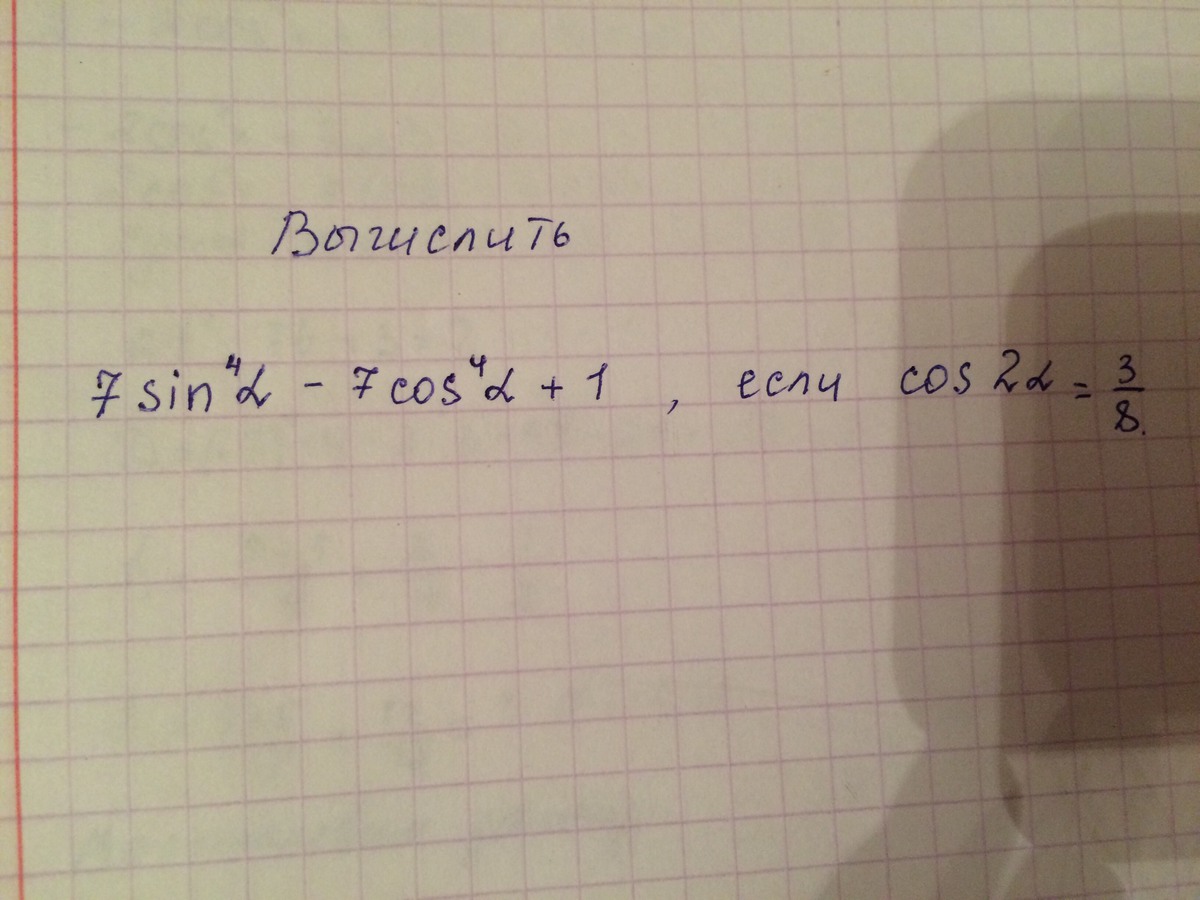 Вычислить
7 sin⁴α - 7 cos⁴α + 1 , если cos 2α = 3/8.